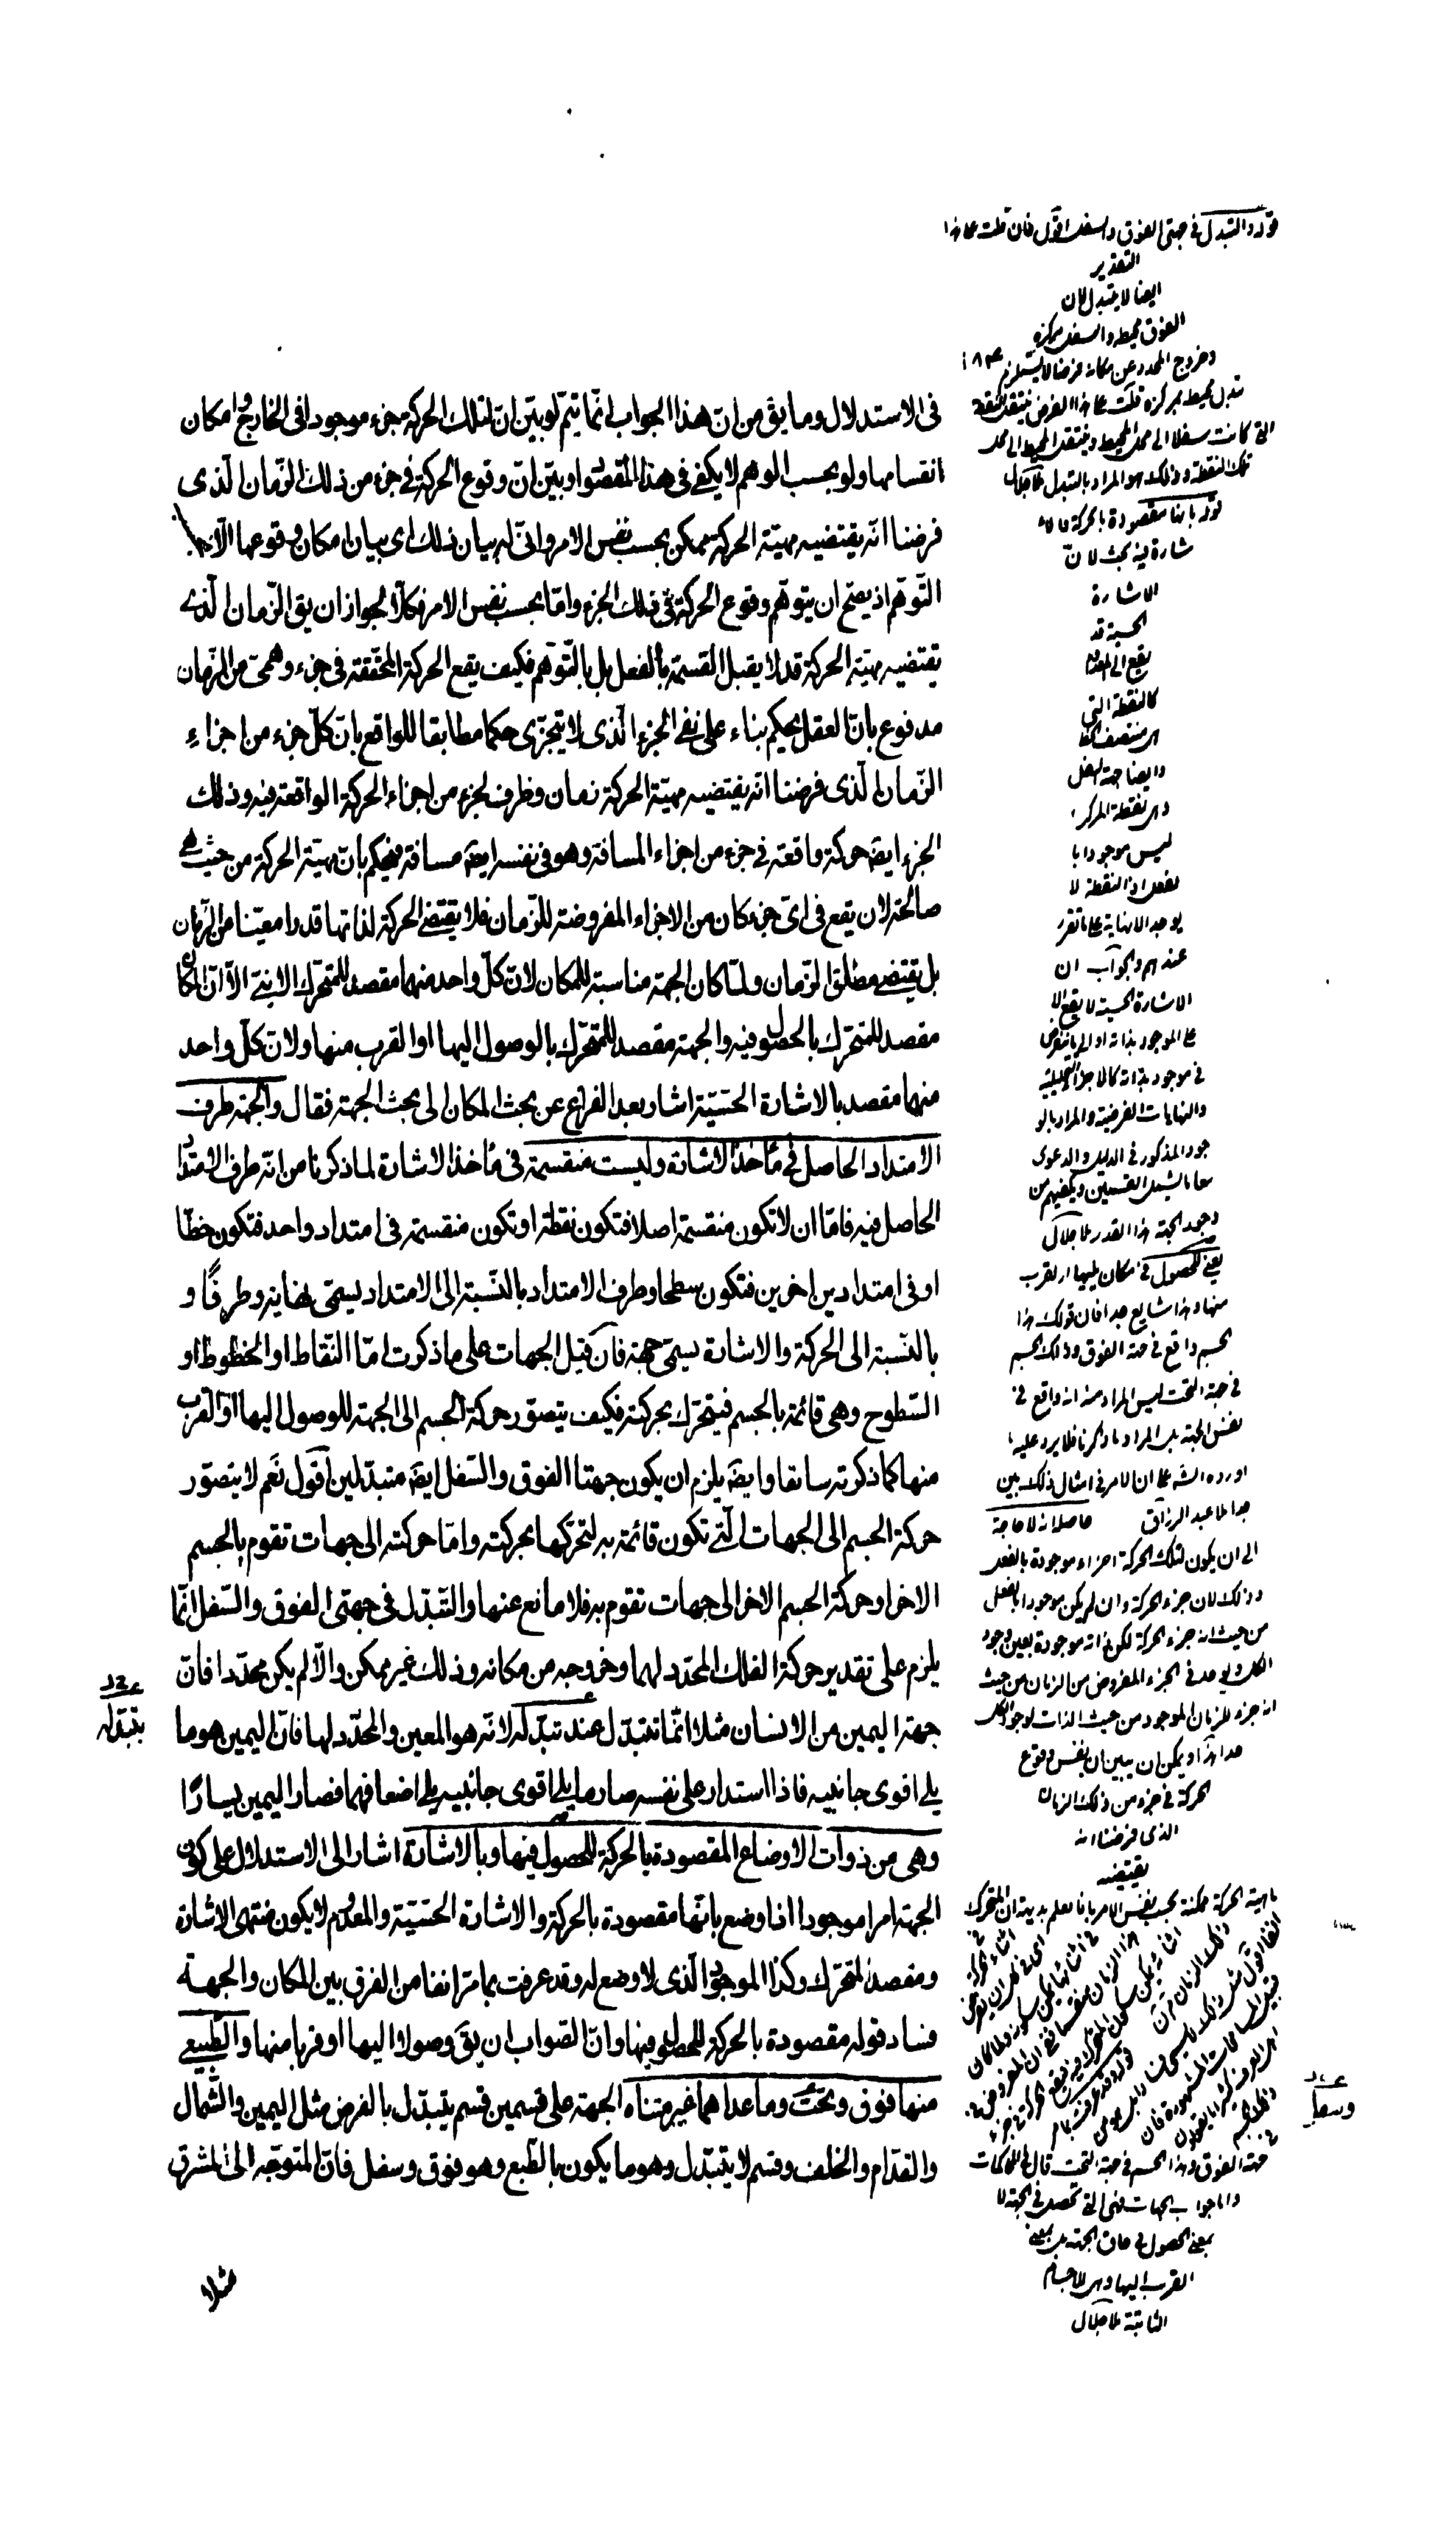 فى الاستدلال وما يق من ان هذا الجواب انّما يتمّ لو بيّن انّ لتلك الحركة جزء موجودا فى الخارج وامكان
انقسامها ولو بحسب الوهم لا يكفى فى هذا المقصود او بيّن انّ وقوع الحركة فى جزء من ذلك الزّمان الّذى
فرضنا انّه يقتضيه مهيّة الحركة ممكن بحسب نفس الامر وانّى له بيان ذلك اى بيان امكان وقوعها الّا
التّوهّم اذ يصحّ ان يتوهّم وقوع الحركة فى ذلك الجزء وامّا بحسب نفس الامر فكلّا لجواز ان يق الزّمان الّذى
يقتضيه مهيّة الحركة قد لا يقبل القسمة بالفعل بل بالتّوهّم فكيف يقع الحركة المحقّقة فى جزء وهمىّ من الزّمان
مدفوع بانّ العقل يحكم بناء على نفى الجزء الّذى لا يتجزّى حكما مطابقا للواقع بانّ كلّ جزء من اجزاء
الزّمان الّذى فرضنا انّه يقتضيه مهيّة الحركة زمان وظرف لجزء من اجزاء الحركة الواقعة فيه وذلك
الجزء ايضا حركة واقعة فى جزء من اجزاء المسافة وهو فى نفسه ايضا مسافة فيحكم بانّ مهيّة الحركة من حيث هى
صالحة لان يقع فى اىّ جزء كان من الاجزاء المفروضة للزّمان فلا يقتضى الحركة لذاتها قدرا معيّنا من الزّمان
بل يقتضى مطلق الزّمان ولمّا كان الجهة مناسبة للمكان لانّ كلّ واحد منهما مقصد للمتحرّك الاينىّ الّا انّ المكان
مقصد للمتحرّك بالحصول فيه والجهة مقصد للمتحرّك بالوصول اليها او القرب منها ولانّ كلّ واحد
منهما مقصد بالاشارة الحسّيّة اشار بعد الفراغ عن بحث المكان الى بحث الجهة فقال والجهة طرف
الامتداد الحاصل فى مأخذ الاشارة وليست منقسمة فى مأخذ الاشارة لما ذكرنا من انّه طرف الامتداد
الحاصل فيه فامّا ان لا تكون منقسمة اصلا فتكون نقطة او تكون منقسمة فى امتداد واحد فتكون خطّا
او فى امتدادين اخرين فتكون سطحا وطرف الامتداد بالنّسبة الى الامتداد يسمّى نهاية وطرفًا و
بالنّسبة الى الحركة والاشارة يسمّى جهة فان قيل الجهات على ما ذكرت امّا النّقاط او الخطوط او
السّطوح وهى قائمة بالجسم فيتحرّك بحركته فكيف يتصوّر حركة الجسم الى الجهة للوصول اليها او القرب
منها كما ذكرته سابقا وايضا يلزم ان يكون جهتا الفوق والسّفل ايضا متبدّلين اقول نعم لا يتصوّر
حركة الجسم الى الجهات الّتى تكون قائمة به لتحرّكها بحركته وامّا حركته الى جهات تقوم بالجسم
الاخر او حركة الجسم الاخر الى جهات تقوم به فلا مانع عنها والتّبدّل فى جهتى الفوق والسّفل انّما
يلزم على تقدير حركة الفلك المحدّد لهما وخروجه من مكانه وذلك غير ممكن والّا لم يكن محدّدا فانّ
جهة اليمين من الانسان مثلا انّما تتبدّل عند تبدّله لانّه هو المعين والمحدّد لها فانّ اليمين هو ما
يلى اقوى جانبيه فاذا استدار على نفسه صار ما يلى اقوى جانبيه يلى اضعافهما فصار اليمين يسارًا
وهى من ذوات الاوضاع المقصودة بالحركة للحصول فيها وبالاشارة اشار الى الاستدلال على كون
الجهة امرا موجودا اذا وضع بانّها مقصودة بالحركة والاشارة الحسّيّة والمعدوم لا يكون منتهى الاشارة
ومقصد المتحرّك وكذا الموجود الّذى لا وضع له وقد عرفت بما مرّ انفا من الفرق بين المكان والجهة
فساد قوله مقصودة بالحركة للحصول فيها وانّ الصّواب ان يق وصولا اليها او قربا منها والطّبيعى
منها فوق وتحت وما عداهما غير متناه الجهة على قسمين قسم يتبدّل بالفرض مثل اليمين والشّمال
والقدّام والخلف وقسم لا يتبدّل وهو ما يكون بالطّبع وهو فوق وسفل فانّ المتوجّه الى المشرق
مثلا
بتبدله
وسفل
قوله والتبدل فى جهتى الفوق والسفل اقول فان قلت على هذا
التقدير
ايضا لا يتبدل لان
الفوق محيطه والسفل مركزه
وخروج المحدد عن مكانه فرضا لا يستلزم
تبدل محيطه بمركزه قلت على هذا الفرض ينتقل النقطة
التى كانت سفلا الى محل المحيط وينتقل المحيط الى محل
تلك النقطة وذلك هو المراد بالتبدل ملا جلال
قوله بانها مقصودة بالحركة والا
شارة فيه بحث لان
الاشارة
الحسية قد
يقع الى
كالنقطة التى
هى منتصف الخط
وايضا جهة السفل
وهى نقطة المركز
ليس موجودا با
لفعل اذ النقطة لا
يوجد الا نهاية على ما تقرر
عندهم والجواب ان
الاشارة الحسية لا يقع الا
على الموجود بذاته او الى ما يفرض
فى موجود بذاته كالاجزاء التحليلية
والنهايات الفرضية والمراد بالو
جود المذكور فى الدليل والدعوى
معا ما يشمل القسمين ويكفيهم من
وجود الجهة هذا القدر ملا جلال
يعنى للحصول فى مكان يليها او القرب
منها وهذا شايع جدا فان قولك هذا
الجسم واقع فى جهة الفوق وذلك الجسم
فى جهة التحت ليس المراد منه انه واقع فى
نفس الجهة بل المراد ما ذكرنا فلا يرد عليه ما
اورده الشه على ان الامر فى امثال ذلك بين
جدا ملا عبد الرزاق حاصله انه لا حاجة
الى ان يكون لتلك الحركة اجزاء موجودة بالفعل
وذلك لان جزء الحركة وان لم يكن موجودا بالفعل
من حيث انه جزء الحركة لكن ذاته موجودة بعين وجود
الكل ويوجد فى الجزء المفروض من الزمان من حيث
انه جزء للزمان الموجود من حيث الذات لوجود الكل
هذا او يمكن ان يبين ان نفس وقوع
الحركة فى جزء من ذلك الزمان
الذى فرضنا انه
يقتضيه
ماهية الحركة ممكنة بحسب نفس الامر بانا نعلم بديهة ان المتحرك
جهة الفوق وهذا الجسم فى جهة التحت قال فى المحاكمات
واما جواب الجهات فهى التى تحصل فى الجهة لا
بمعنى الحصول فى حاق الجهة بل بمعنى
القرب اليها وهى للاجسام
الثابتة ملا جلال